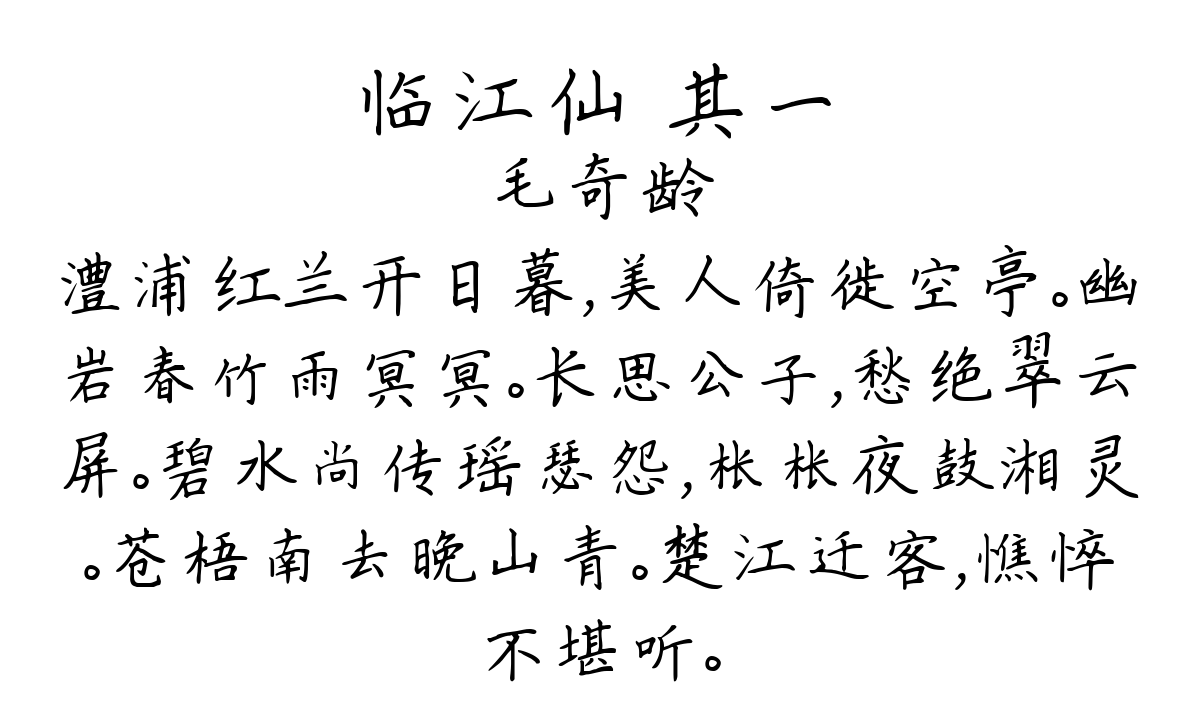 临江仙 其一
毛奇龄
澧浦红兰开日暮,美人倚徙空亭。幽
岩春竹雨冥冥。长思公子,愁绝翠云
屏。碧水尚传瑶瑟怨,枨枨夜鼓湘灵
。苍梧南去晚山青。楚江迁客,憔悴
不堪听。